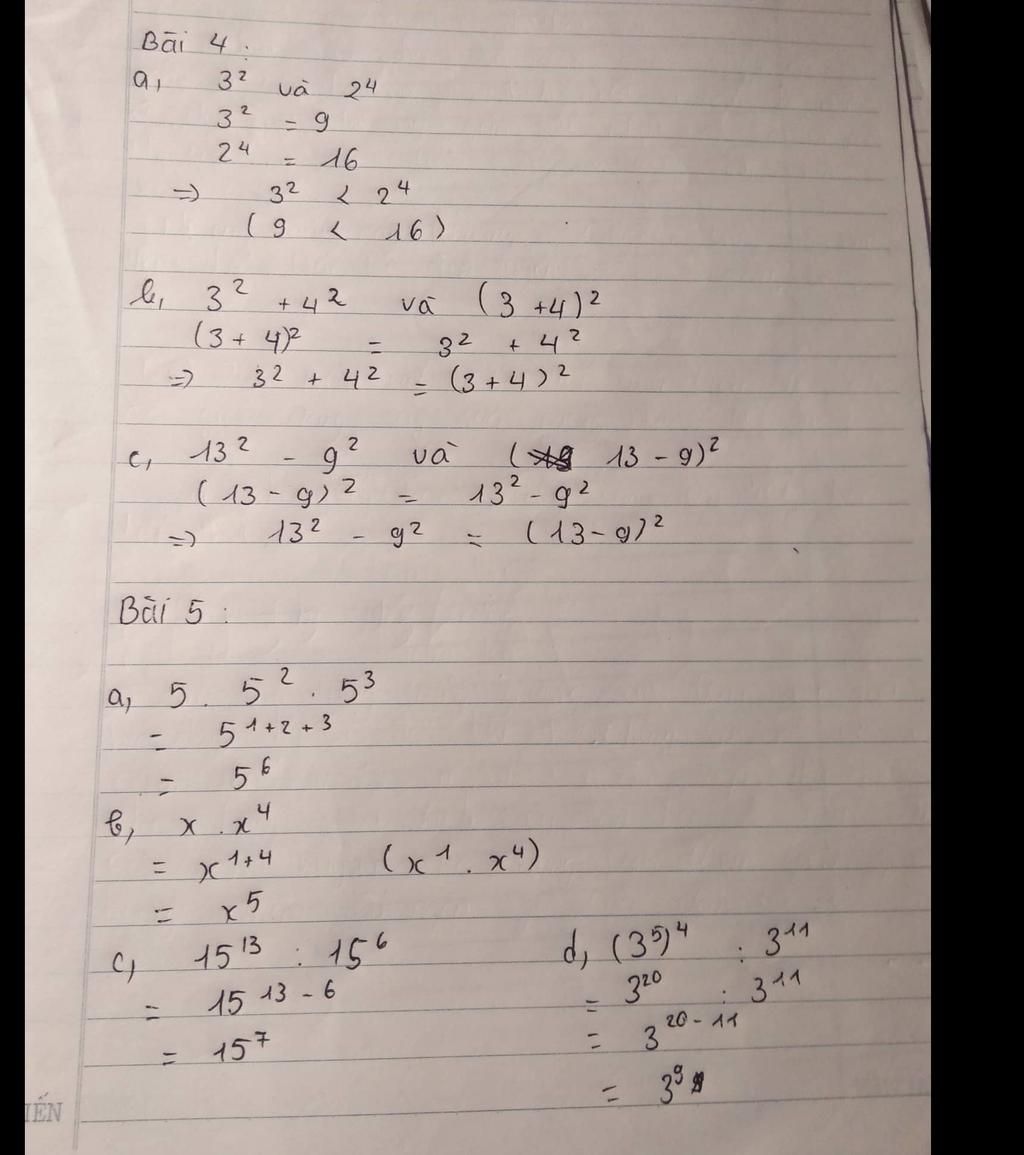 Bài 4 :
a, 3² và 2⁴
3² = 9
2⁴ = 16
=> 3² < 2⁴
( 9 < 16 )
b, 3² + 4² và (3 + 4)²
(3 + 4)² = 3² + 4²
=> 3² + 4² = (3 + 4)²
c, 13² - 9² và ( 13 - 9)²
(13 - 9)² = 13² - 9²
=> 13² - 9² = (13 - 9)²
Bài 5 :
a, 5 . 5² . 5³
= 5¹⁺²⁺³
= 5⁶
b, x . x⁴
= x¹⁺⁴ (x¹ . x⁴)
= x⁵
c, 15¹³ : 15⁶
= 15¹³⁻⁶
= 15⁷
d, (3⁵)⁴ : 3¹¹
= 3²⁰ : 3¹¹
= 3²⁰⁻¹¹
= 3⁹